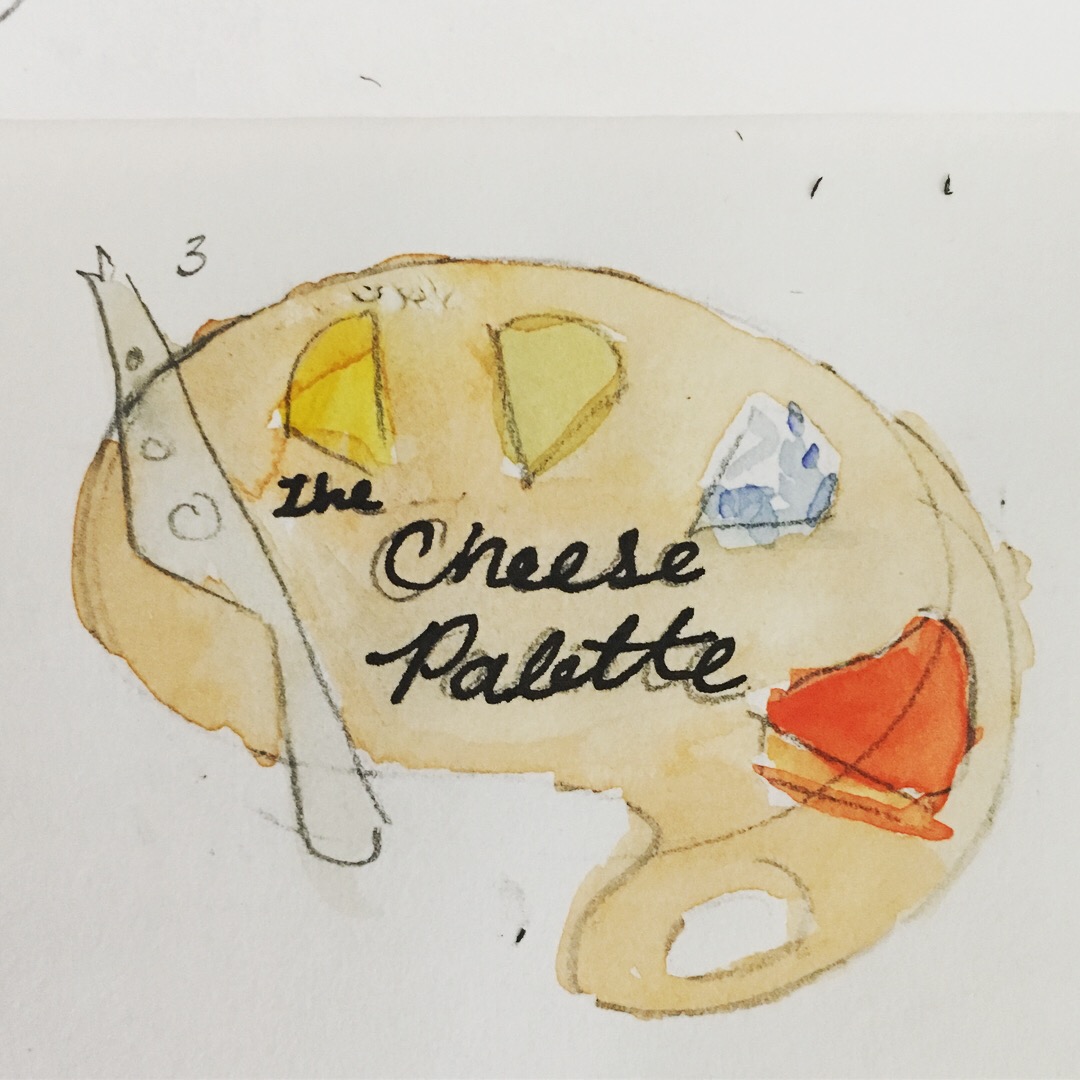 3
The
Cheese
Palette